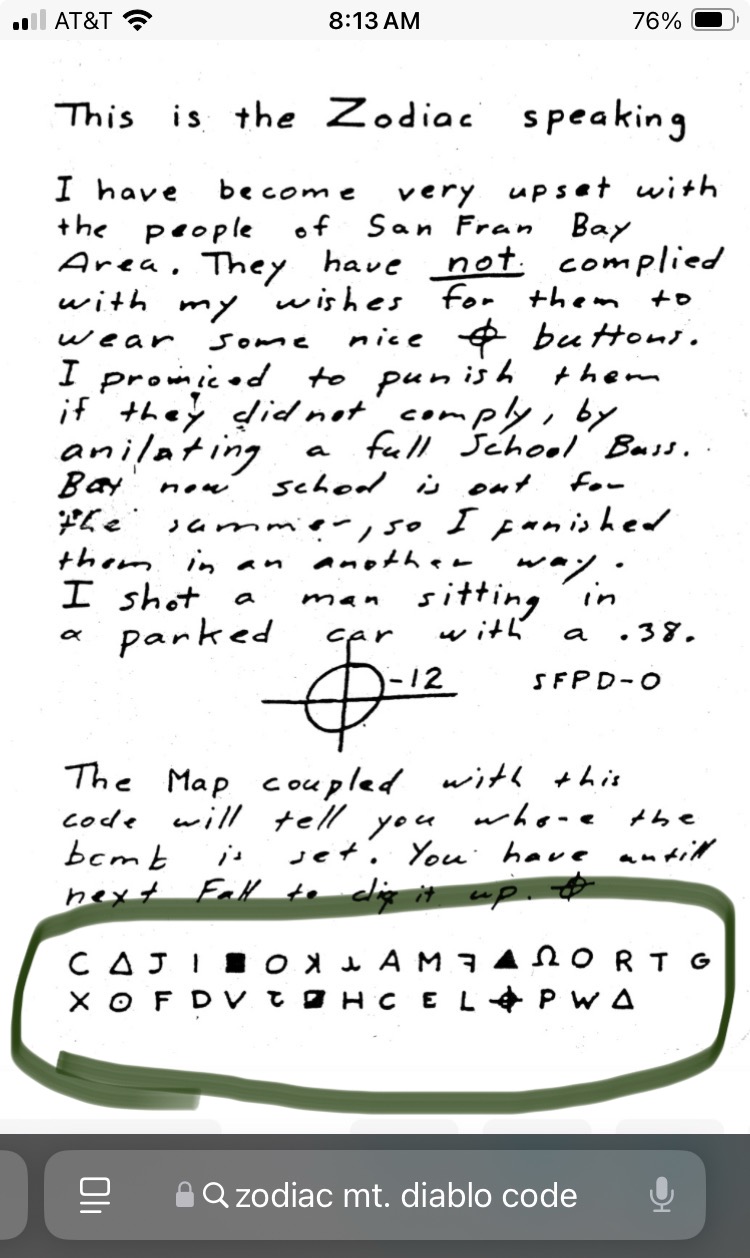 AT&T 8:13 AM 76%
This is the Zodiac speaking
I have become very upset with
the people of San Fran Bay
Area. They have not complied
with my wishes for them to
wear some nice ⌖ buttons.
I promiced to punish them
if they did not comply, by
anilating a full School Buss.
But now school is out for
the summer, so I punished
them in an another way.
I shot a man sitting in
a parked car with a .38.
⌖-12 SFPD-0
The Map coupled with this
code will tell you where the
bomb is set. You have untill
next Fall to dig it up. ⌖
C Δ J I ■ O ꓘ ⅄ A M ꟻ ▲ Ω O R T G
X ⊙ F D V ⊏ ◪ H C E L ⌖ P W Δ
zodiac mt. diablo code